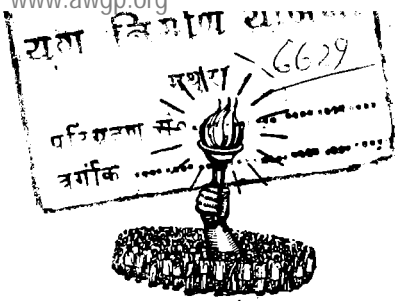 www.awgp.org
युग निर्माण योजना
मथुरा 6629
परिग्रहण सं०
वर्गांक